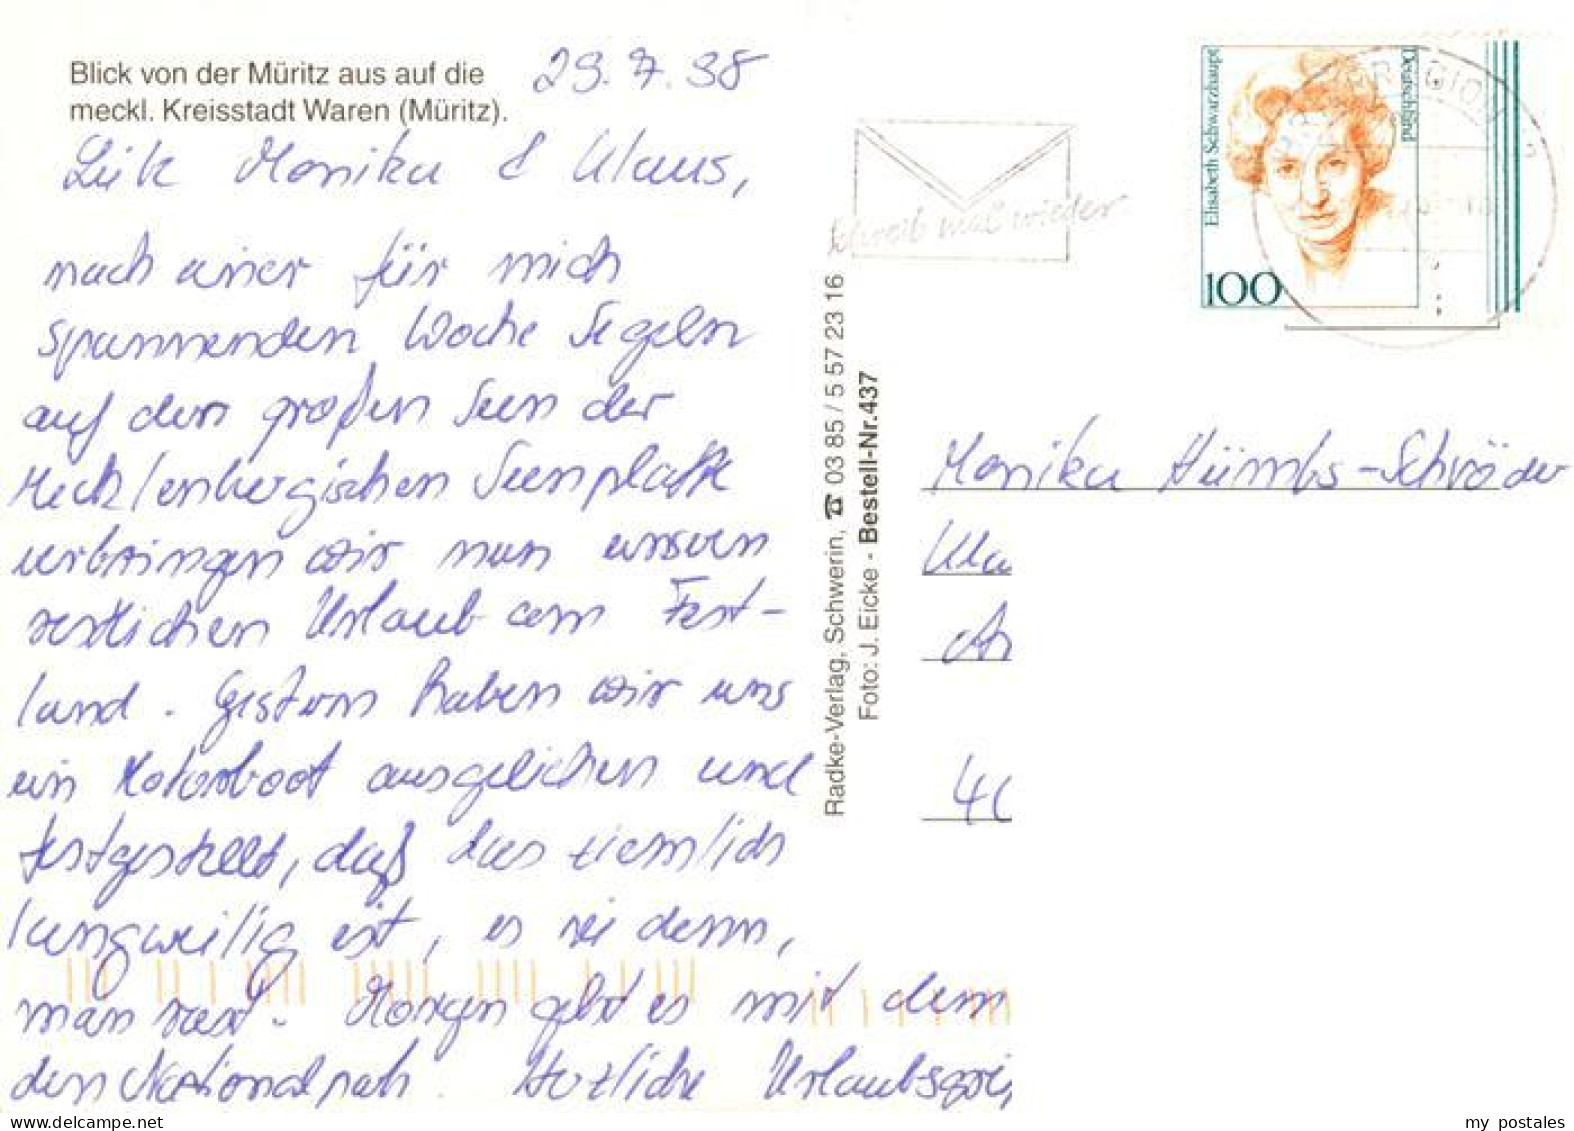 Blick von der Müritz aus auf die
meckl. Kreisstadt Waren (Müritz).
29.7.98
Monika & Klaus,
nach einer für mich
spannenden Woche Segeln
auf den großen Seen der
Mecklenbergischen Seenplatte
verbringen wir nun unseren
restlichen Urlaub am Fest-
land. Gestern haben wir uns
ein Motorboot ausgeliehen und
festgestellt, daß das ziemlich
langweilig ist, es sei denn,
man rast. Morgen geht es mit dem
den Nationalpark. Herzliche Urlaubsgrü
Radke-Verlag, Schwerin, ☎ 03 85 / 5 57 23 16
Foto: J. Eicke - Bestell-Nr.437
Schreib mal wieder
Elisabeth Schwarzhaupt
Deutschland
100
Monika Hümbs-Schröder
Kla
my postales